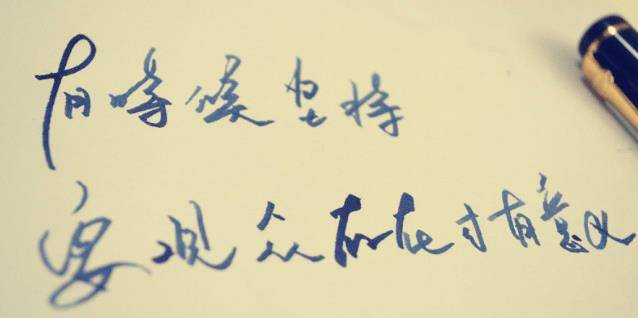 有时候坚持
要观众存在才有意义